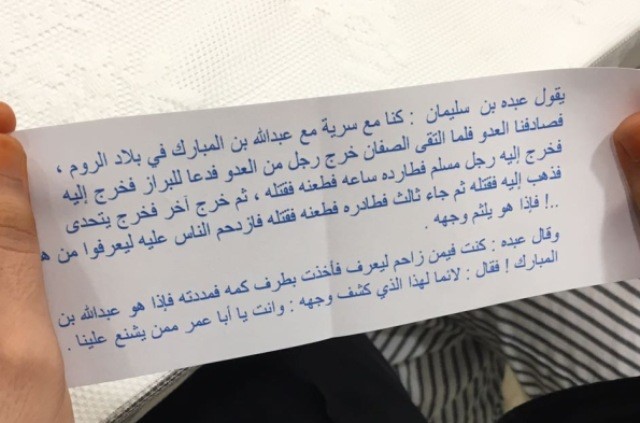 يقول عبده بن سليمان : كنا مع سرية مع عبدالله بن المبارك في بلاد الروم ،
فصادفنا العدو فلما التقى الصفان خرج رجل من العدو فدعا للبراز فخرج إليه
فخرج إليه رجل مسلم فطارده ساعه فطعنه فقتله ، ثم خرج آخر فخرج يتحدى
فذهب إليه فقتله ثم جاء ثالث فطادره فطعنه فقتله فازدحم الناس عليه ليعرفوا من
..! فإذا هو يلثم وجهه .
وقال عبده : كنت فيمن زاحم ليعرف فأخذت بطرف كمه فمددته فإذا هو عبدالله بن
المبارك ! فقال : لائما لهذا الذي كشف وجهه : وانت يا أبا عمر ممن يشنع علينا .